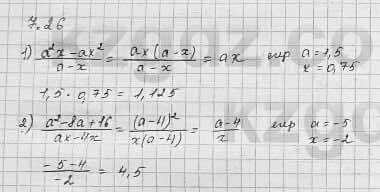 7.26
1) \frac{a²x - ax²}{a - x} = \frac{ax(a - x)}{a - x} = ax егер a = 1,5 x = 0,75
1,5 · 0,75 = 1,125
2) \frac{a² - 8a + 16}{ax - 4x} = \frac{(a - 4)²}{x(a - 4)} = \frac{a - 4}{x} егер a = -5 x = -2
\frac{-5 - 4}{-2} = 4,5